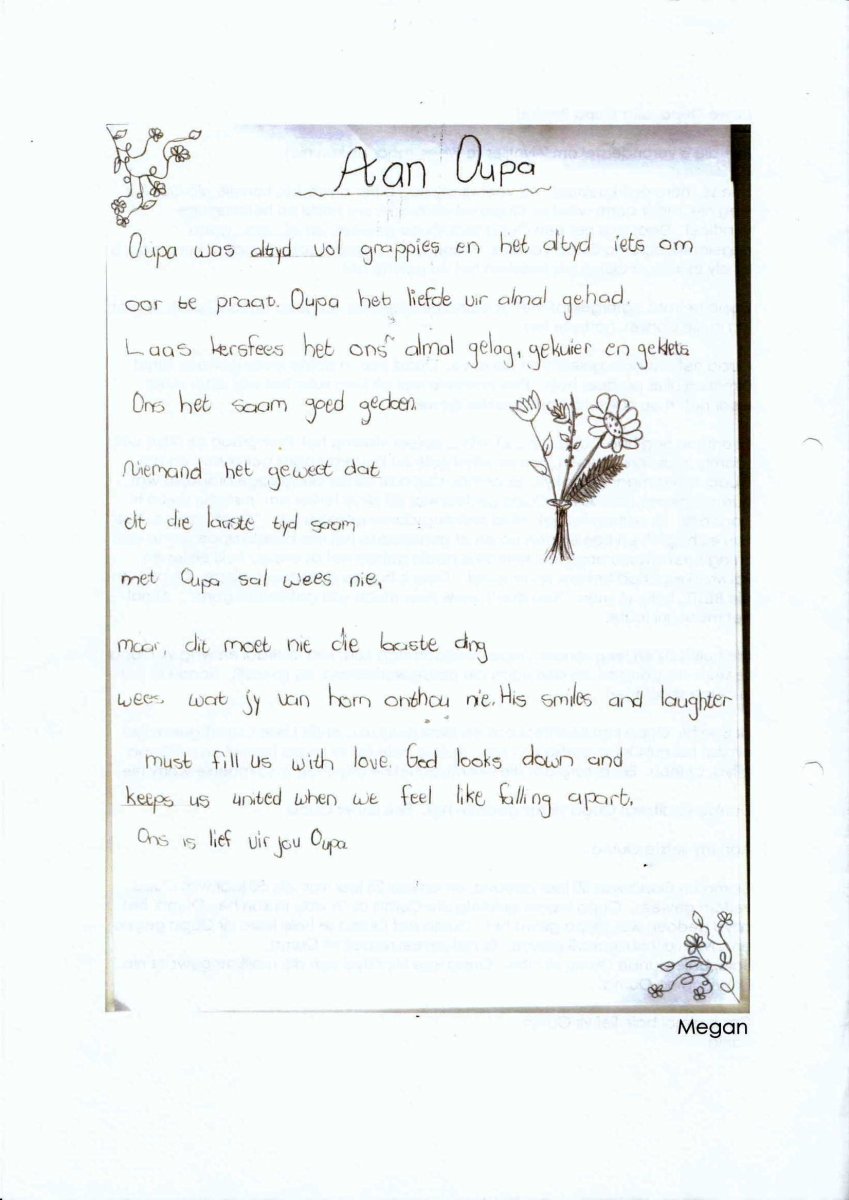 Aan Oupa
Oupa was altyd vol grappies en het altyd iets om
oor te praat. Oupa het liefde vir almal gehad.
Laas kersfees het ons almal gelag, gekuier en geklets
Ons het saam goed gedoen.
Niemand het geweet dat
dit die laaste tyd saam
met Oupa sal wees nie,
maar, dit moet nie die laaste ding
wees wat jy van hom onthou nie. His smiles and laughter
must fill us with love. God looks down and
keeps us united when we feel like falling apart.
Ons is lief vir jou Oupa
Megan